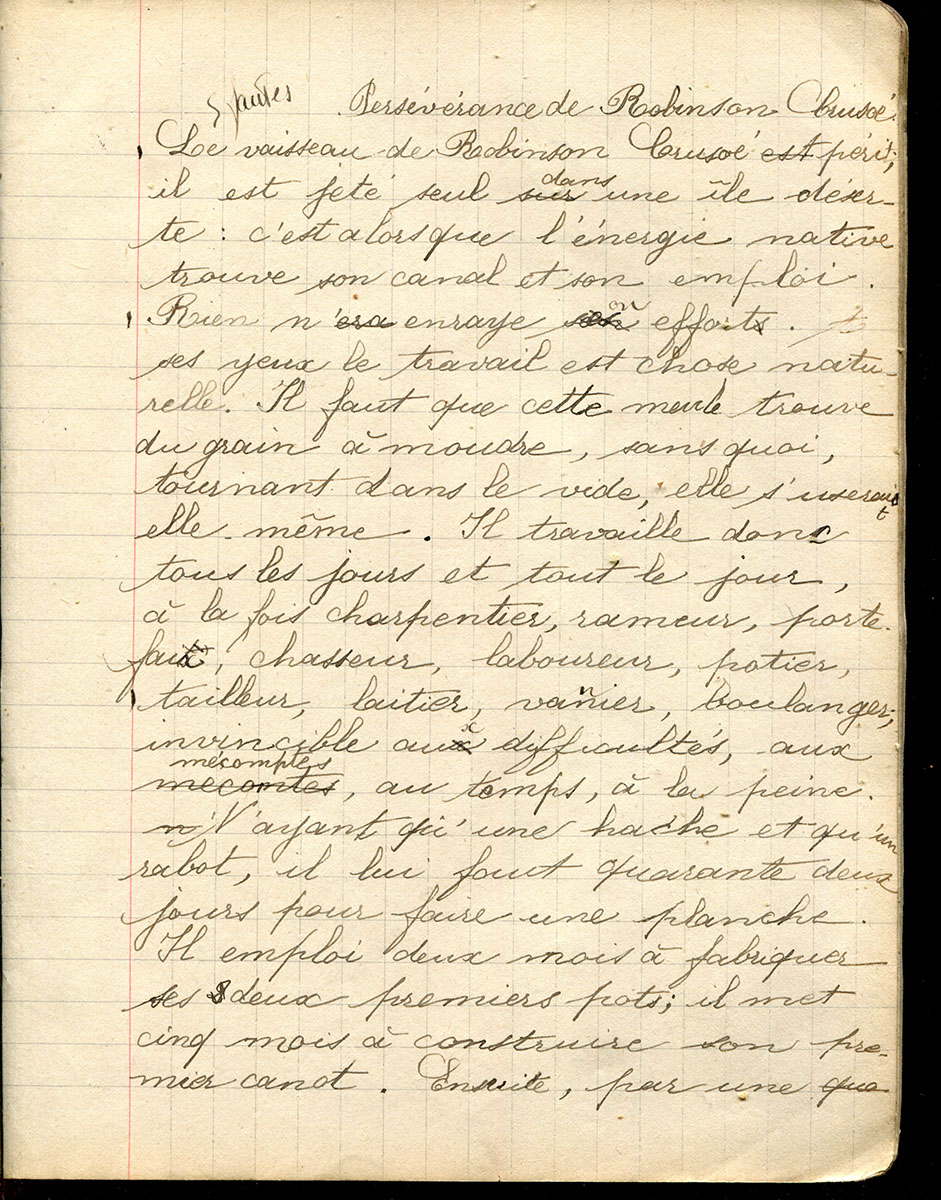 5 fautes Persévérance de Robinson Crusoé.
Le vaisseau de Robinson Crusoé est périt;
dans
il est jeté seul sur une île déser-
te : c'est alors que l'énergie native
trouve son canal et son emploi.
on
Rien n'era enraye son efforts. A
ses yeux le travail est chose natu-
relle. Il faut que cette meule trouve
du grain à moudre, sans quoi,
tournant dans le vide, elle s'userait
elle-même. Il travaille donc
tous les jours et tout le jour,
à la fois charpentier, rameur, porte-
faix, chasseur, laboureur, potier,
tailleur, laitier, vannier, boulanger;
invincible aux difficultés, aux
mécomptes
mécontes, au temps, à la peine.
n N'ayant qu'une hache et qu'un
rabot, il lui faut quarante deux
jours pour faire une planche.
Il emploi deux mois à fabriquer
ses deux premiers pots; il met
cinq mois à construire son pre-
mier canot. Ensuite, par une que